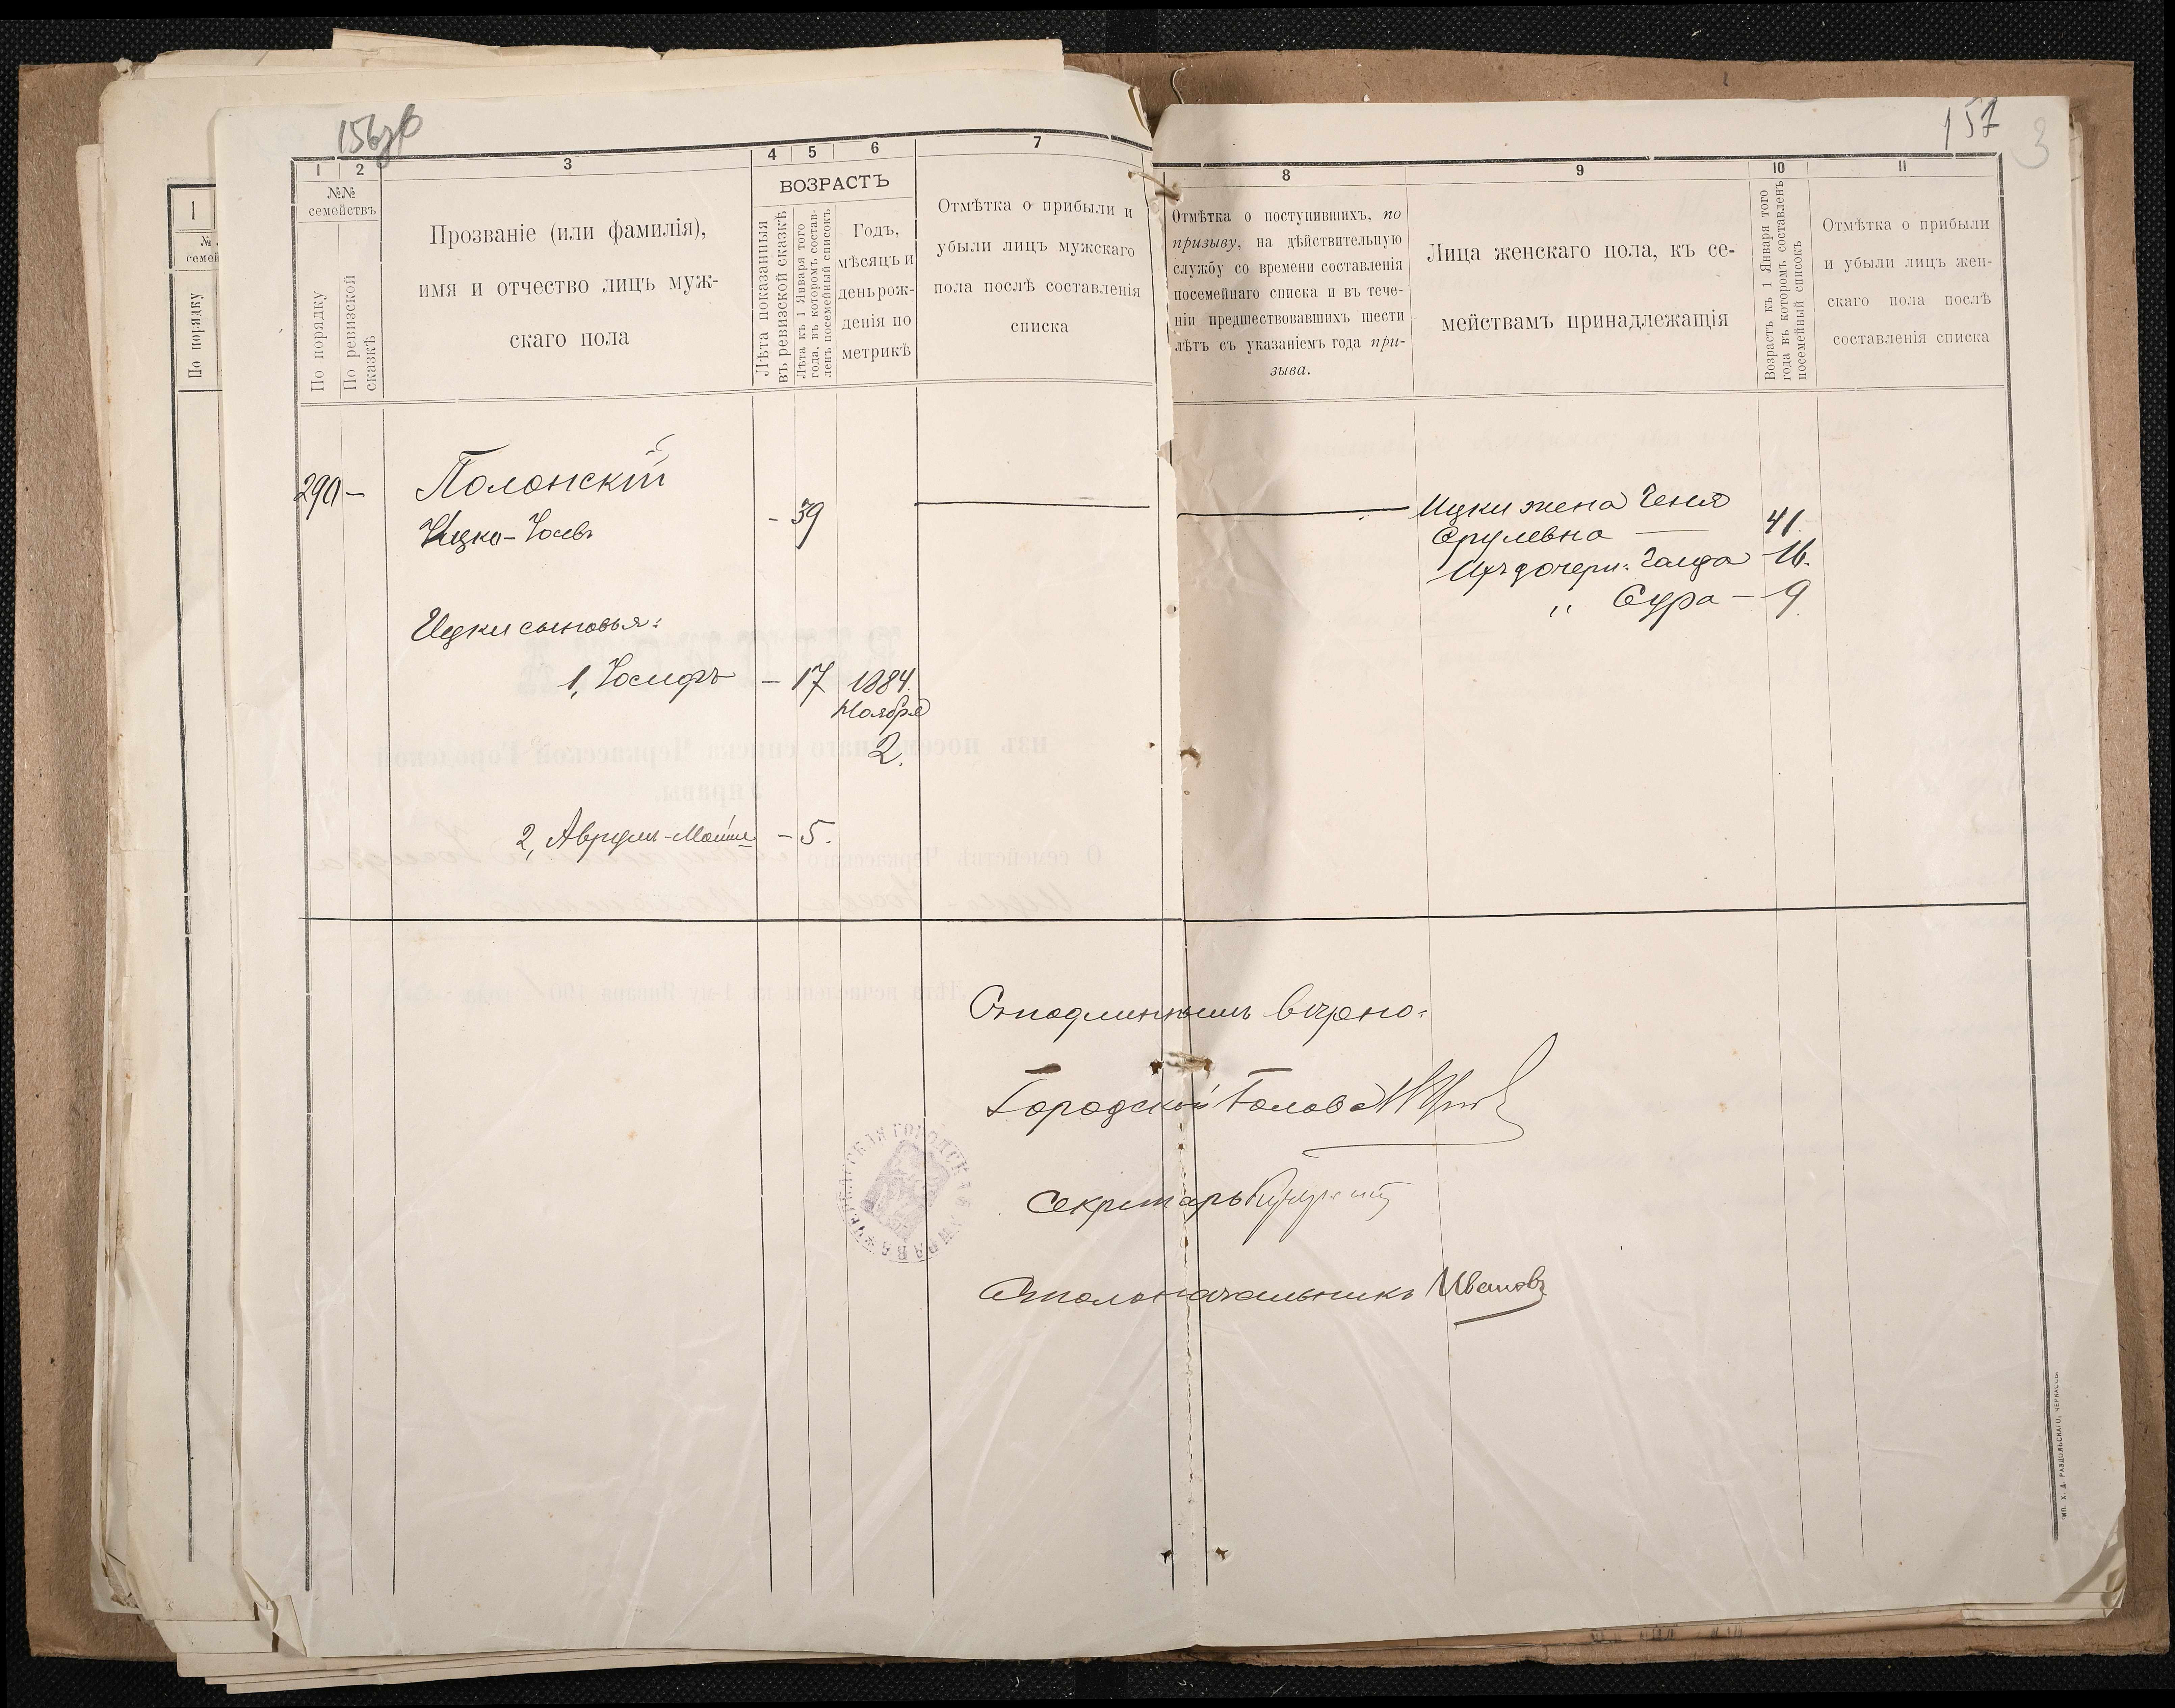 156об
157
3
1 2 3 4 5 6 7
№№ семействъ
По порядку
По ревизской сказкѣ
Прозваніе (или фамилія),
имя и отчество лицъ муж-
скаго пола
ВОЗРАСТЪ
Лѣта показанныя
въ ревизской сказкѣ
Лѣта къ 1 Января того
года, въ которомъ состав-
ленъ посемейный списокъ
Годъ,
мѣсяцъ и
день рож-
денія по
метрикѣ
Отмѣтка о прибыли и
убыли лицъ мужскаго
пола послѣ составленія
списка
8 9 10 11
Отмѣтка о поступившихъ, по
призыву, на дѣйствительную
службу со времени составленія
посемейнаго списка и въ тече-
ніи предшествовавшихъ шести
лѣтъ съ указаніемъ года при-
зыва.
Лица женскаго пола, къ се-
мействамъ принадлежащія
Возрастъ къ 1 Января того
года въ которомъ составленъ
посемейный списокъ
Отмѣтка о прибыли
и убыли лицъ жен-
скаго пола послѣ
составленія списка
290 —
Полонскій
Ицко-Іосевъ - 39
Ицки сыновья:
1, Іосифъ — 17 1884.
Ноября
2.
2, Аврумъ-Мойше - 5.
Ицки жена Ченя
Срулевна — 41.
Ихъ дочери: Хайда 16.
" Сура — 9.
Съ подлиннымъ вѣрно:
Городской Голова
Секретарь
Столоначальникъ Ивановъ
ГОРОДСКАЯ УПРАВА
ТИП. Х. Д. РАЗДОЛЬСКАГО, ЧЕРКАССЫ
1
№
семей
По порядку